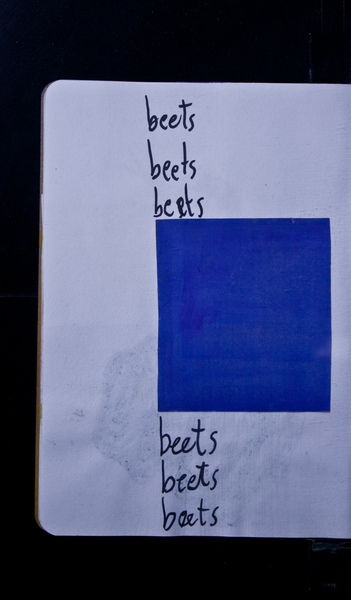 beets
beets
beets
beets
beets
beets